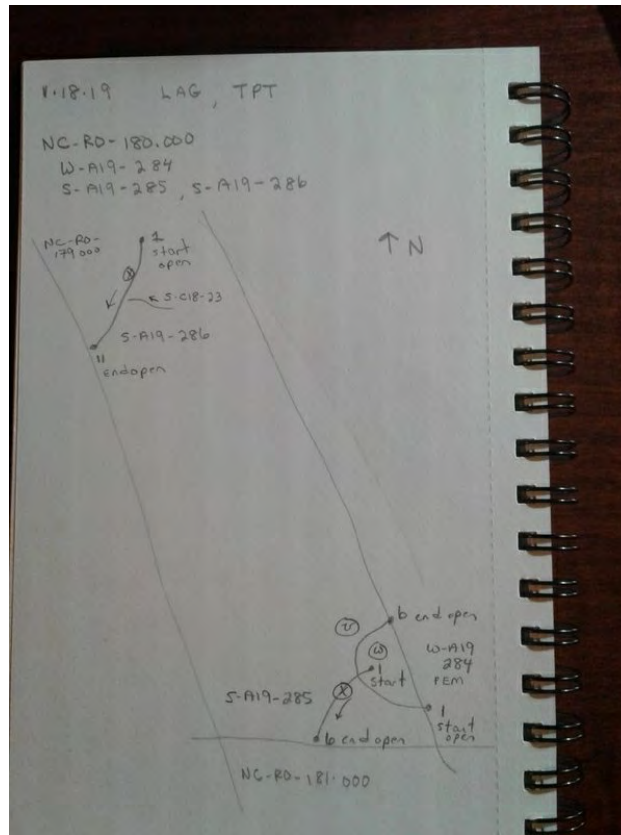 1.18.19 LAG, TPT
NC-RO-180.000
W-A19-284
S-A19-285, S-A19-286
NC-RO-
179.000
1
start
open
↑ N
S-C18-23
S-A19-286
11
end open
6 end open
W
W-A19
284
PEM
1
start
S-A19-285
X
1
start
open
6 end open
NC-RO-181.000